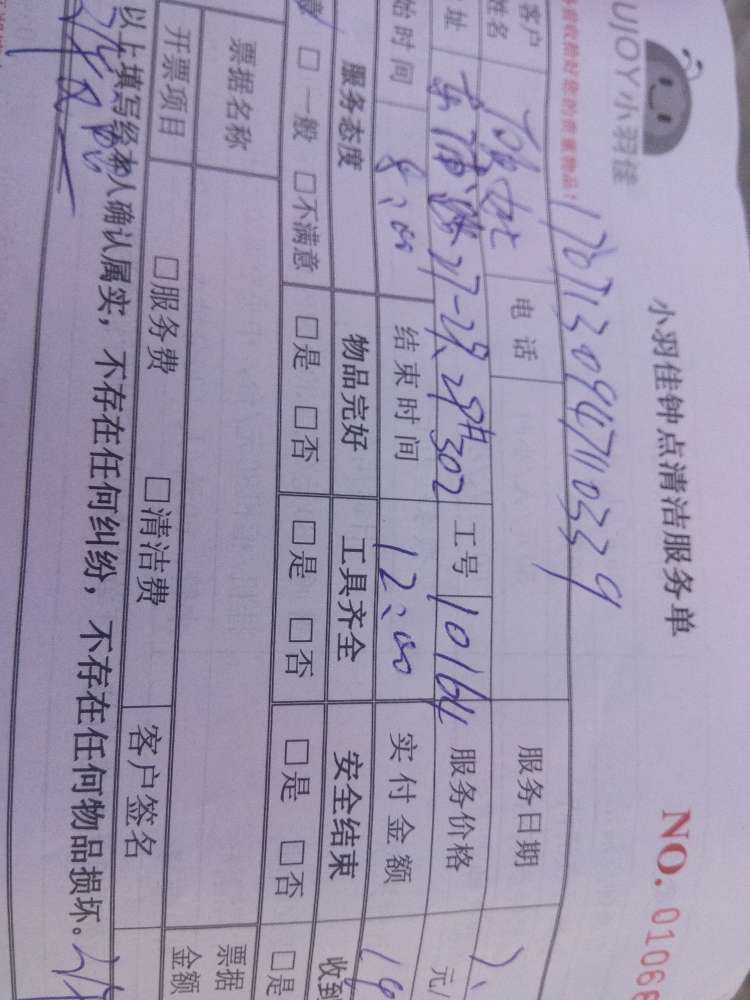 UJOY小羽佳
小羽佳钟点清洁服务单
NO. 01066
收拾好您的贵重物品！
1707130947110339
客户姓名 电话 服务日期
址 27-29. 302 工号 10164 服务价格 元/
始时间 8:00 结束时间 12:00 实付金额
服务态度 物品完好 工具齐全 安全结束 收到
意 □一般 □不满意 □是 □否 □是 □否 □是 □否 □是
票据名称 票据金额
开票项目 □服务费 □清洁费 客户签名
以上填写经本人确认属实，不存在任何纠纷，不存在任何物品损坏。